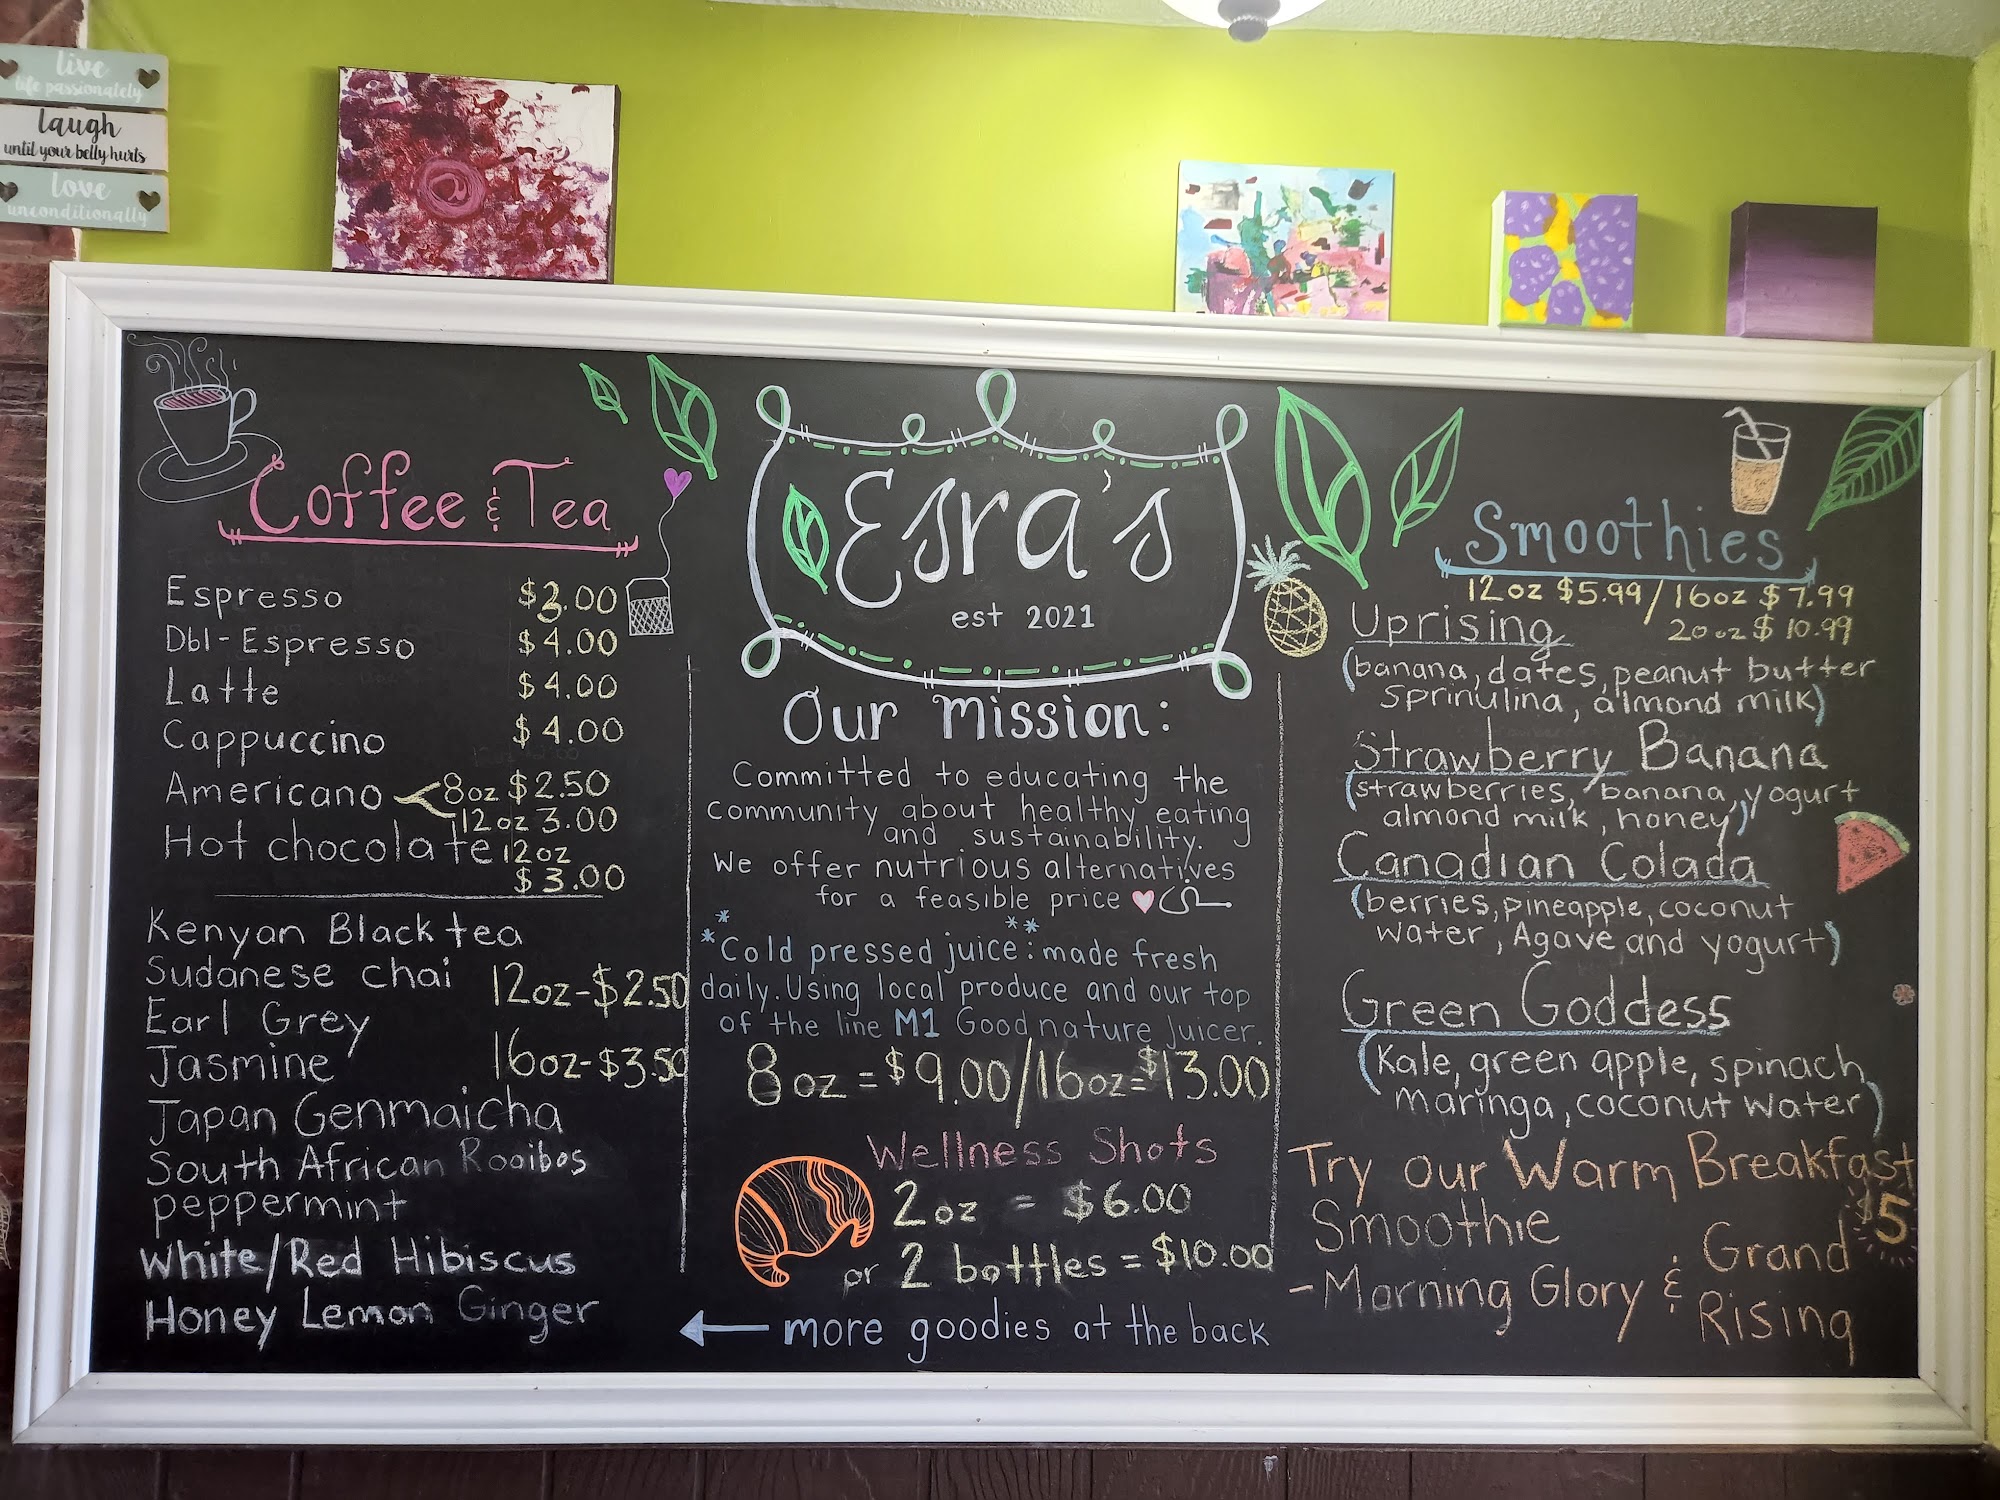 live
life passionately
laugh
until your belly hurts
love
unconditionally
Coffee & Tea
Espresso $3.00
Dbl-Espresso $4.00
Latte $4.00
Cappuccino $4.00
Americano 8oz $2.50
12oz 3.00
Hot chocolate 12oz
$3.00
Kenyan Black tea
Sudanese chai
12oz-$2.50
Earl Grey
Jasmine
16oz-$3.50
Japan Genmaicha
South African Rooibos
peppermint
White/Red Hibiscus
Honey Lemon Ginger
Esra's
est 2021
Our Mission:
Committed to educating the
community about healthy eating
and sustainability.
We offer nutrious alternatives
for a feasible price
*Cold pressed juice**: made fresh
daily. Using local produce and our top
of the line M1 Goodnature Juicer.
8oz = $9.00/16oz=$13.00
Wellness Shots
2oz = $6.00
or 2 bottles = $10.00
← more goodies at the back
Smoothies
12oz $5.99/16oz $7.99
20oz $10.99
Uprising
(banana, dates, peanut butter
Sprinulina, almond milk)
Strawberry Banana
(strawberries, banana, yogurt
almond milk, honey)
Canadian Colada
(berries, pineapple, coconut
water, Agave and yogurt)
Green Goddess
(Kale, green apple, spinach
maringa, coconut water)
Try our Warm Breakfast
Smoothie $5
-Morning Glory & Grand
Rising